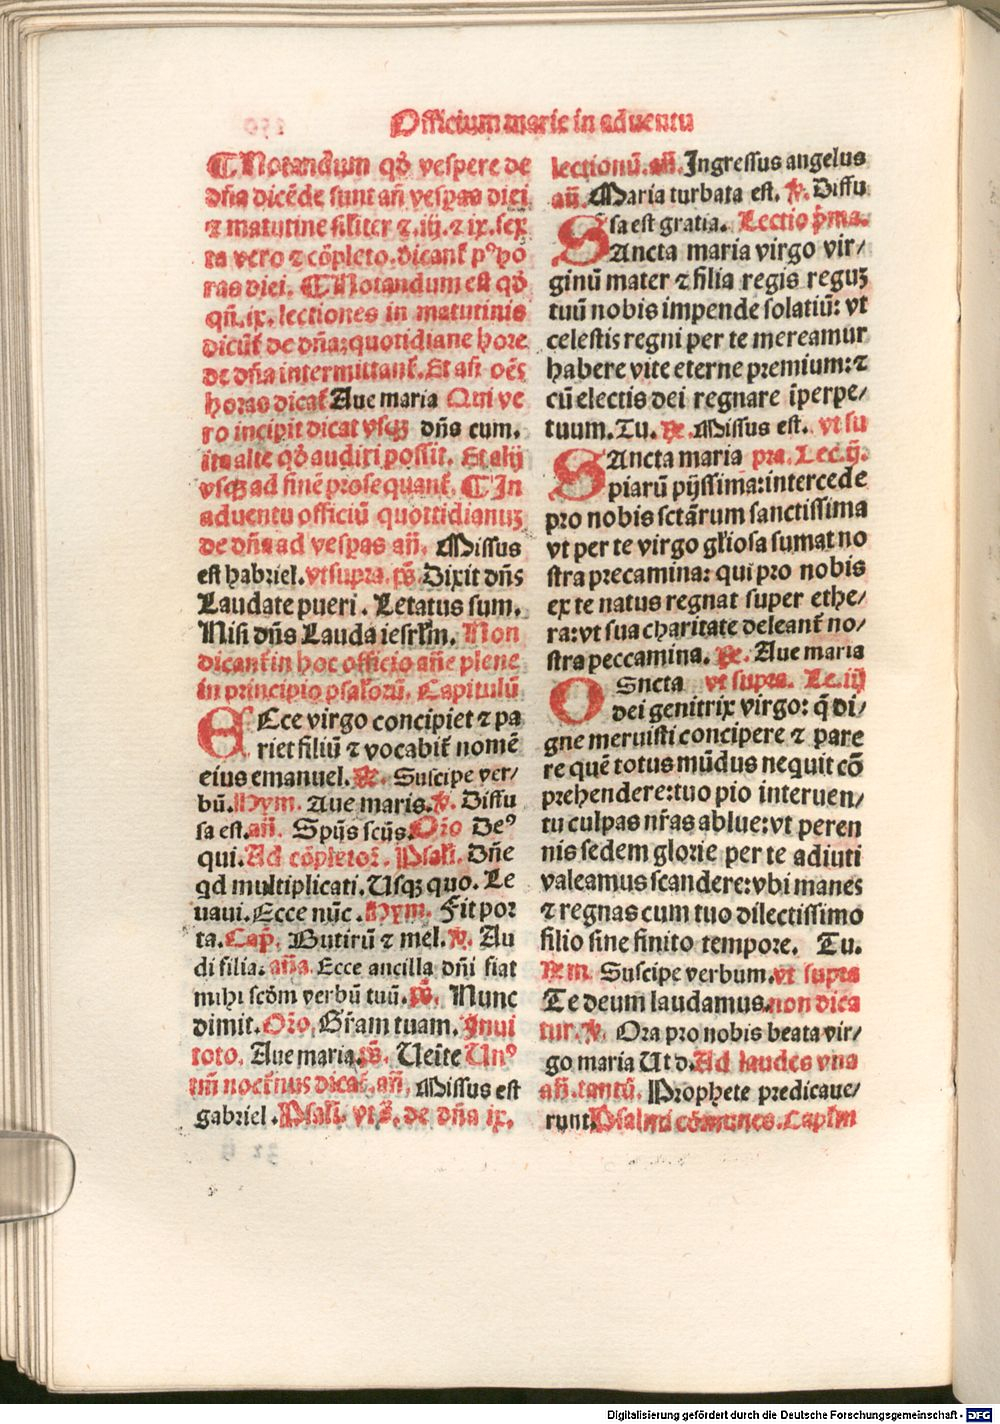 Officium marie in aduentu
¶ Notandum qḋ vespere de
dña dicẽde sunt añ vesꝑas diei
⁊ matutine siłiter ⁊.iij.⁊ ix.sex
ta vero ⁊ cõpleto.dicant᷑ pꝰ ho
ras diei. ¶ Notandum est qḋ
qñ.ix.lectiones in matutinis
dicũt᷑ de dña:quotidiane hore
de dña intermittant᷑.Et añ oẽs
horas dicat᷑ Aue maria Qui ve
ro incipit dicat vsqꝫ dñs cum.
ita alte qḋ auditi possit. Et alij
vsqꝫ ad finẽ prosequant᷑. ¶ In
aduentu officiũ quottidianuꝫ
de dña ad vesꝑas añ. Missus
est habriel.vt supra.p̃s Dixit dñs
Laudate pueri. Letatus sum.
Nisi dñs Lauda iesrłm. Non
dicant᷑ in hoc officio añe plene
in principio psałorũ. Capitulũ
ECce virgo concipiet ⁊ pa
riet filiũ ⁊ vocabit᷑ nomẽ
eius emanuel.℞. Suscipe ver/
bũ.Hym. Aue maris.℣. Diffu
sa est.añ. Spũs scũs.Oro Deꝰ
qui.Ad cõpletoꝝ. Psał. Dñe
qd multiplicati.Usqꝫ quo. Le
uaui.Ecce nũc.Hym. Fit poꝛ
ta.Cap̃. Butirũ ⁊ mel.℣. Au
di filia.aña. Ecce ancilla dñi fiat
mihi scḋm verbũ tuũ.p̃s. Nunc
dimit.Oro. Gr̃am tuam. Inui
toto. Aue maria.p̃s. Ueĩte Unꝰ
tm̃ noct᷑nus dicat᷑.añ. Missus est
gabriel.Psał. vt s̃. de dña ix.
lectionũ.añ. Ingressus angelus
añ. Maria turbata est. ℣. Diffu
sa est gratia. Lectio p̃ma.
SAncta maria virgo vir/
ginũ mater ⁊ filia regis reguꝫ
tuũ nobis impende solatiũ: vt
celestis regni per te mereamur
habere vite eterne premium:⁊
cũ electis dei regnare ĩperpe/
tuum.Tu. ℞. Missus est. vt su
SAncta maria pra. Lec.ij.
piarũ pijssima:intercede
pro nobis sctãrum sanctissima
vt per te virgo głiosa sumat no
stra precamina: qui pro nobis
ex te natus regnat super ethe/
ra:vt sua charitate deleant᷑ no/
stra peccamina. ℞. Aue maria
OSncta vt supra. Le.iij
dei genitrix virgo: q̃ di/
gne meruisti concipere ⁊ pare
re quẽ totus mũdus nequit cõ
prehendere:tuo pio interuen/
tu culpas nr̃as ablue:vt peren
nis sedem glorie per te adiuti
valeamus scandere:vbi manes
⁊ regnas cum tuo dilectissimo
filio sine finito tempore. Tu.
℞m. Suscipe verbum.vt supra
Te deum laudamus.non dica
tur.℣. Ora pro nobis beata vir/
go maria Ut d.Ad laudes vna
añ.tantũ. Prophete predicaue/
runt.Psalmi cõmunes.Capłm
Digitalisierung gefördert durch die Deutsche Forschungsgemeinschaft - DFG